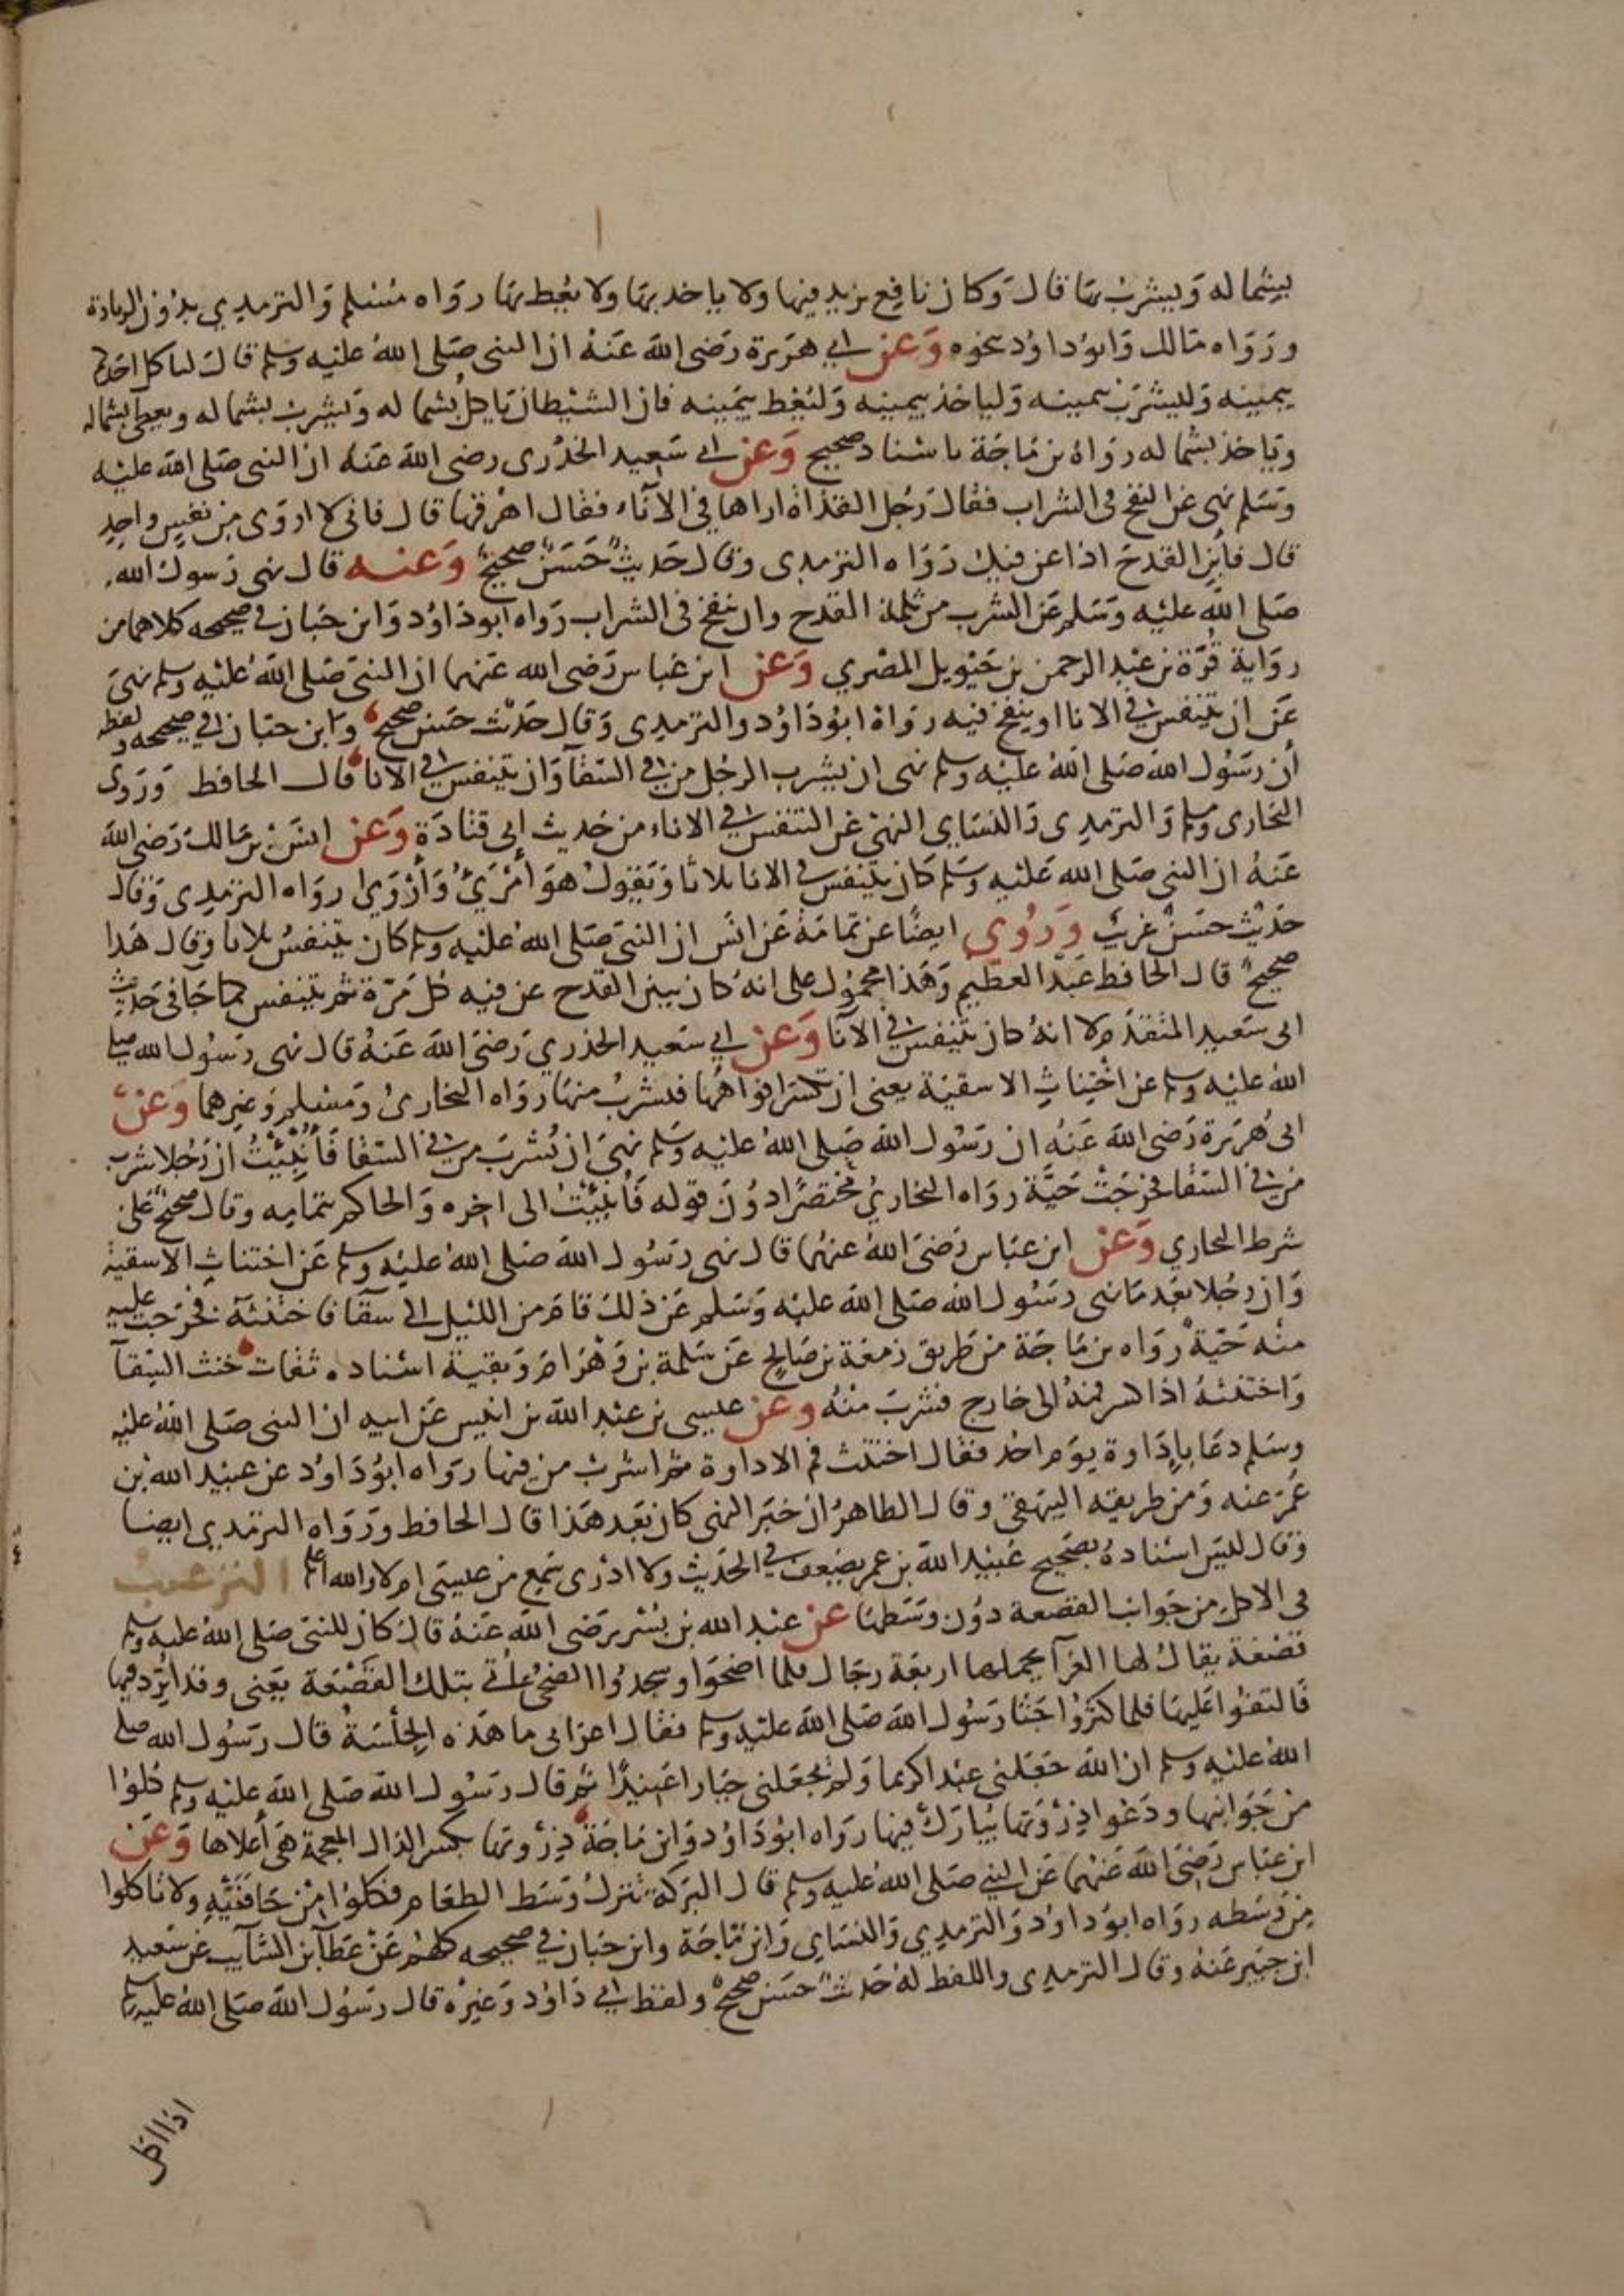 بشماله ويشرب بها قال وكان نافع يزيد فيها ولا ياخد بها ولا يعط بها رواه مسلم والترمدي بدون الزيادة
ورواه مالك وابو داود بنحوه وعن ابي هريرة رضى الله عنه ان النبى صلى الله عليه وسلم قال لياكل احدكم
بيمينه وليشرب بيمينه ولياخذ بيمينه وليعط بيمينه فان الشيطان ياكل بشماله ويشرب بشماله ويعطى بشماله
وياخذ بشماله رواه بن ماجة باسناد صحيح وعن ابي سعيد الخدرى رضى الله عنه ان النبى صلى الله عليه
وسلم نهى عن النفخ فى الشراب فقال رجل القذاة اراها في الآناء فقال اهرقها قال فانى لا اروى من نفس واحد
قال فأبن القدح اذا عن فيك رواه الترمدى وقال حديث حسن صحيح وعنه قال نهى رسول الله
صلى الله عليه وسلم عن الشرب من ثلمة القدح وان ينفخ فى الشراب رواه ابو داود وابن حبان في صحيحه كلاهما من
رواية قرة بن عبد الرحمن بن حيويل المصري وعن ابن عباس رضى الله عنهما ان النبى صلى الله عليه وسلم نهى
عن ان يتنفس في الانا او ينفخ فيه رواه ابو داود والترمدى وقال حديث حسن صحيح وابن حبان في صحيحه ولفظه
أن رسول الله صلى الله عليه وسلم نهى ان يشرب الرجل من في السقآ وان يتنفس في الانا قال الحافظ وروى
البخارى ومسلم والترمدى والنساى النهى عن التنفس في الاناء من حديث ابى قتادة وعن انس بن مالك رضى الله
عنه ان النبى صلى الله عليه وسلم كان يتنفس في الانا ثلاثا ويقول هو أمرئ وأروى رواه الترمدى وقال
حديث حسن غريب وروي ايضا عن ثمامة عن انس ان النبى صلى الله عليه وسلم كان يتنفس ثلاثا وقال هدا
صحيح قال الحافط عبد العظيم وهذا محمول على انه كان يبين القدح عن فيه كل مرة ثم يتنفس كما جا فى حديث
ابى سعيد المتقدم لا انه كان يتنفس في الآنا وعن ابي سعيد الخدري رضى الله عنه قال نهى رسول الله صلى
الله عليه وسلم عن اختناث الاسقية يعنى ان تكسر افواهها فيشرب منها رواه البخارى ومسلم وغيرهما وعن
ابى هريرة رضى الله عنه ان رسول الله صلى الله عليه وسلم نهى ان يشرب من في السقا فأنبئت ان رجلا شرب
من في السقا فخرجت حية رواه البخاري مختصرا دون قوله فأنبئت الى اخره والحاكم بتمامه وقال صحيح على
شرط البخاري وعن ابن عباس رضى الله عنهما قال نهى رسول الله صلى الله عليه وسلم عن اختناث الاسقية
وان رجلا بعد ما نهى رسول الله صلى الله عليه وسلم عن ذلك قام من الليل الى سقآ فاختنثه فخرجت عليه
منه حية رواه بن ماجة من طريق زمعة بن صالح عن سلمة بن وهرام وبقية اسناده ثقات خنث السقآ
واختنثه اذا كسر فمه الى خارج فشرب منه وعن عيسى بن عبد الله بن انيس عن ابيه ان النبى صلى الله عليه
وسلم دعا باداوة يوم احد فقال اختنث فم الاداوة ثم اشرب من فيها رواه ابو داود عن عبيد الله بن
عمر عنه ومن طريقه البيهقى وقال الطاهر ان خبر النهى كان بعد هذا قال الحافط ورواه الترمدي ايضا
وقال ليس اسناده بصحيح عبيد الله بن عمر يضعف في الحديث ولا ادرى سمع من عيسى ام لا والله اعلم الترغيب
فى الاكل من جوانب القصعة دون وسطها عن عبد الله بن بسر رضى الله عنه قال كان للنبى صلى الله عليه وسلم
قصعة يقال لها الغرآ يحملها اربعة رجال فلما اضحوا وسجدوا الضحى أتى بتلك القصعة يعنى وقد اثرد فيها
فالتفوا عليها فلما كثروا جثا رسول الله صلى الله عليه وسلم فقال اعرابى ما هذه الجلسة قال رسول الله صلى
الله عليه وسلم ان الله جعلنى عبدا كريما ولم يجعلنى جبارا عنيدا ثم قال رسول الله صلى الله عليه وسلم كلوا
من جوانبها ودعوا ذروتها يبارك فيها رواه ابو داود وابن ماجة ذروتها بكسر الذال المعجمة هى أعلاها وعن
ابن عباس رضى الله عنهما عن النبي صلى الله عليه وسلم قال البركة تنزل وسط الطعام فكلوا من حافتيه ولا تاكلوا
من وسطه رواه ابو داود والترمدي والنساى وابن ماجة وابن حبان في صحيحه كلهم عن عطآ بن السآيب عن سعيد
ابن جبير عنه وقال الترمدى واللفط له حديث حسن صحيح ولفظ ابي داود وغيره قال رسول الله صلى الله عليه وسلم
اذا اكل